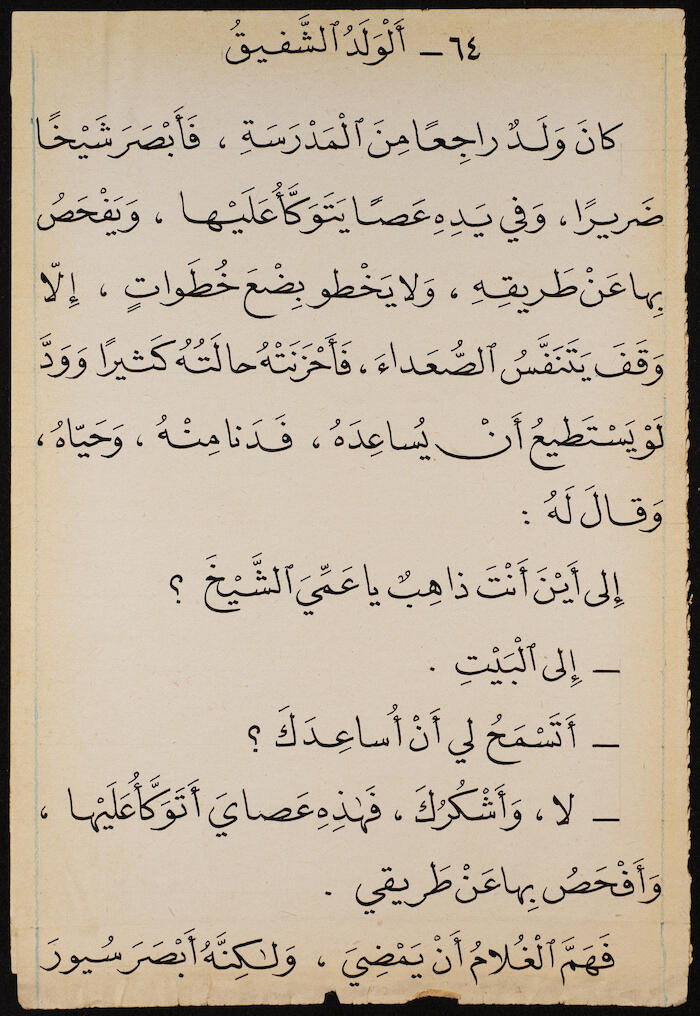 ٦٤ ـ أَلْوَلَدُ ٱلشَّفيقُ
كانَ وَلَدٌ راجِعًا مِنَ ٱلْمَدْرَسَةِ ، فَأَبْصَرَ شَيْخًا
ضَريرًا، وَفي يَدِهِ عَصًا يَتَوَكَّأُ عَلَيْها ، وَيَفْحَصُ
بِها عَنْ طَريقِهِ ، وَلا يَخْطو بِضْعَ خُطَواتٍ ، إِلّا
وَقَفَ يَتَنَفَّسُ ٱلصُّعَداءَ، فَأَحْزَنَتْهُ حالَتُهُ كَثيرًا وَوَدَّ
لَوْ يَسْتَطيعُ أَنْ يُساعِدَهُ ، فَدَنا مِنْهُ ، وَحَيّاهُ ،
وَقالَ لَهُ :
إِلى أَيْنَ أَنْتَ ذاهِبٌ يا عَمِّيَ ٱلشَّيْخَ ؟
ـ إِلى ٱلْبَيْتِ .
ـ أَتَسْمَحُ لي أَنْ أُساعِدَكَ ؟
ـ لا ، وَأَشْكُرُكَ ، فَهٰذِهِ عَصايَ أَتَوَكَّأُ عَلَيْها ،
وَأَفْحَصُ بِها عَنْ طَريقي .
فَهَمَّ ٱلْغُلامُ أَنْ يَمْضِيَ ، وَلٰكِنَّهُ أَبْصَرَ سُيورَ